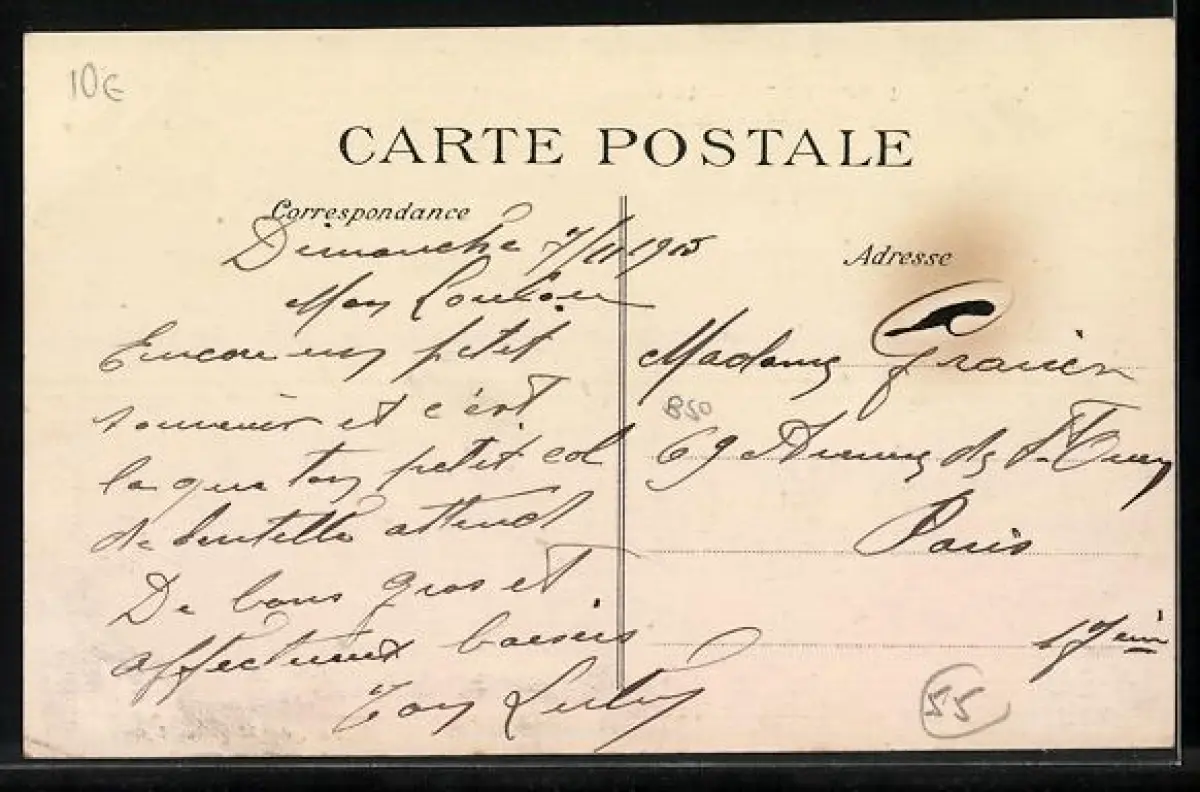 10€
CARTE POSTALE
Correspondance
Dimanche 7/11 1915
Mon Loulou
Encore un petit
souvenir et c'est
la que ton petit col
de dentelle attend
De bons gros et
affectueux baisers
Ton
Adresse
Madame Granier
B50
69 Avenue de St Ouen
Paris
17eim
55